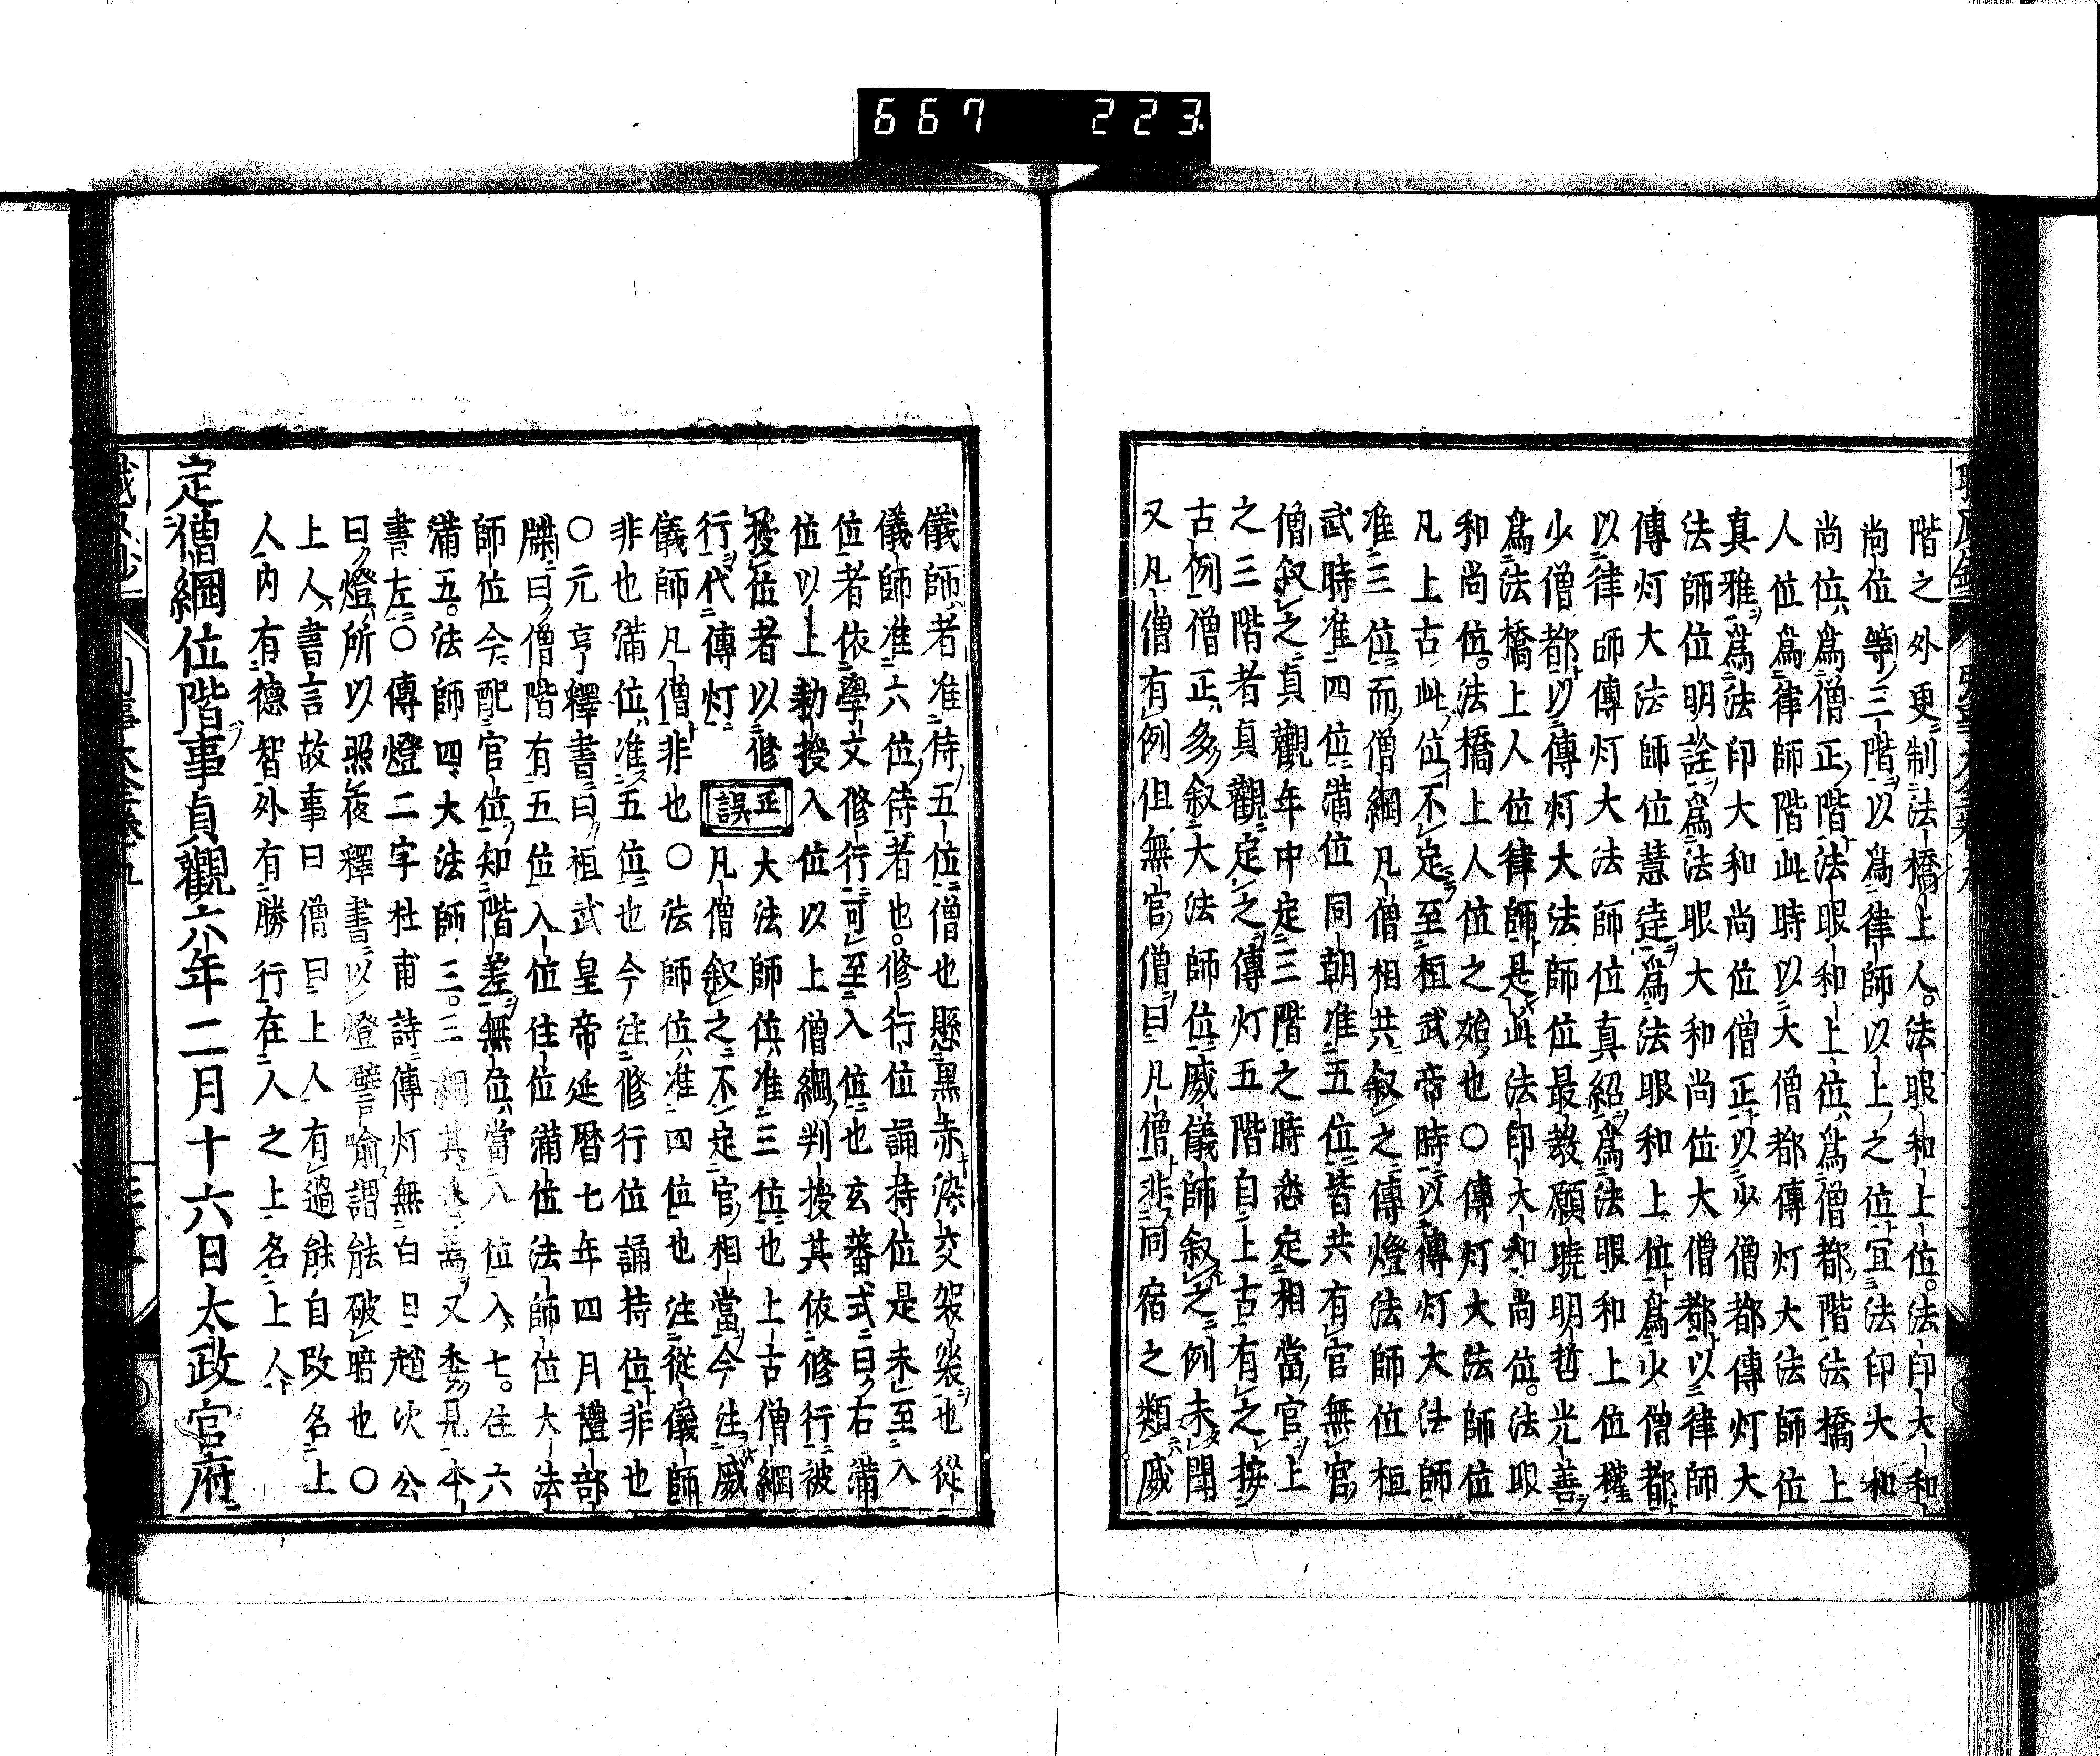 667 223
階之外更制法橋上人法眼和上位法印大和
尚位等三階以爲律師以上之位宜法印大和
尚位爲僧正階法眼和上位爲僧都階法橋上
人位爲律師階此時以大僧都傳灯大法師位
真雅爲法印大和尚位僧正以少僧都傳灯大
法師位明詮爲法眼大和尚位大僧都以律師
傳灯大法師位慧達爲法眼和上位爲少僧都
以律師傳灯大法師位真紹爲法眼和上位權
少僧都以傳灯大法師位最教願曉明哲光善
爲法橋上人位律師是此法印大和尚位法眼
和尚位法橋上人位之始也○傳灯大法師位
凡上古此位不定至桓武帝時以傳灯大法師
准三位而僧綱凡僧相共叙之傳燈法師位桓
武時准四位滿位同朝准五位皆共有官無官
僧叙之貞觀年中定三階之時悉定相當官上
之三階者貞觀定之傳灯五階自上古有之按
古例僧正多叙大法師位威儀師叙之例未聞
又凡僧有例但無官僧曰凡僧非同宿之類威
儀師者准侍五位僧也懸黒赤染交袈裟也從
儀師准六位侍者也修行位誦持位是未至入
位者依學文修行可至入位也玄蕃式曰右滿
位以上勅授入位以上僧綱判授其依修行被
授位者以修 正誤 大法師位准三位也上古僧綱
行代傳灯 凡僧叙之不定官相當今注威
儀師凡僧非也○法師位准四位也注從儀師
非也滿位准五位也今注修行位誦持位非也
○元亨釋書曰祖武皇帝延暦七年四月禮部
牒曰僧階有五位入位住位滿位法師位大法
師位今配官位知階差無位當八位入七住六
滿五法師四大法師三三綱其又委見本
書左○傳燈二字杜甫詩傳灯無白日趙次公
曰燈所以照夜釋書以燈譬喻謂能破暗也○
上人書言故事曰僧曰上人有過能自改名上
人内有德智外有勝行在人之上名上人
定僧綱位階事貞觀六年二月十六日太政官府